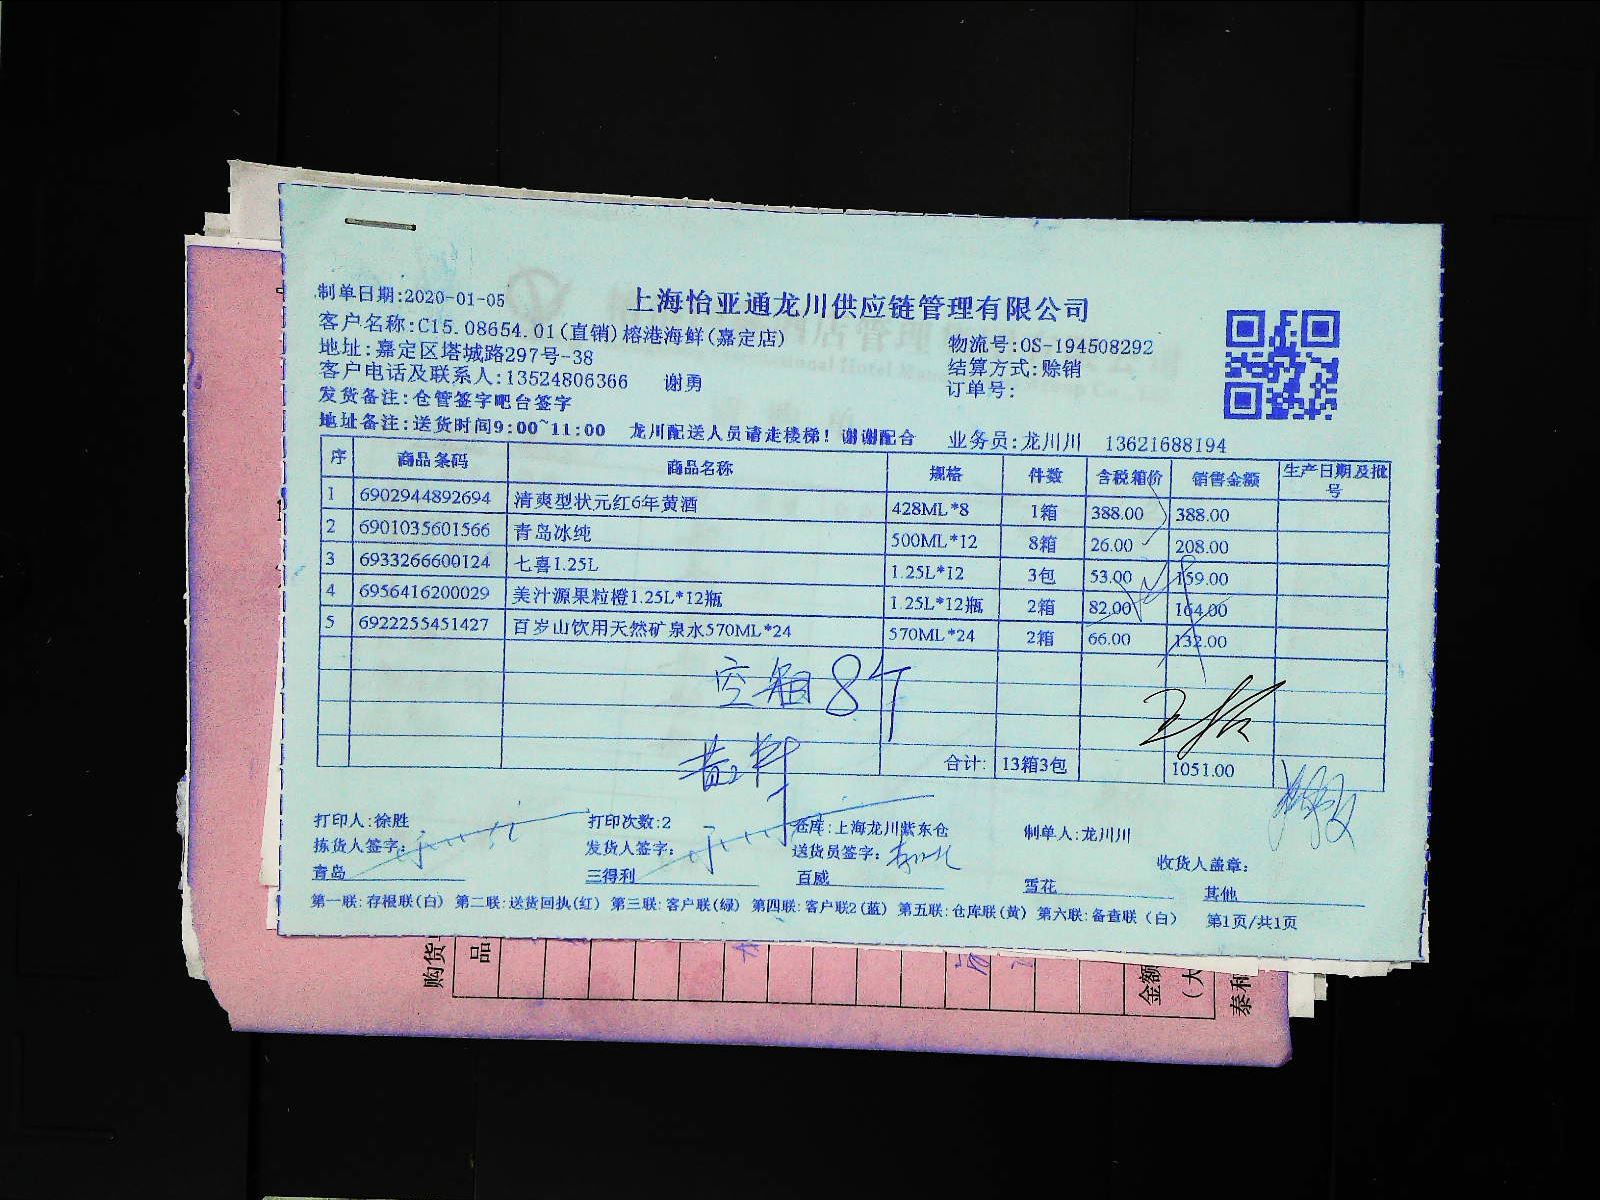 上海怡亚通龙川供应链管理有限公司
制单日期:2020-01-05
客户名称:C15.08654.01(直销)榕港海鲜(嘉定店)
物流号:OS-194508292
地址:嘉定区塔城路297号-38
结算方式:赊销
客户电话及联系人:13524806366 谢勇
订单号:
发货备注:仓管签字吧台签字
地址备注:送货时间9:00~11:00 龙川配送人员请走楼梯!谢谢配合 业务员:龙川川 13621688194
序 商品条码 商品名称 规格 件数 含税箱价 销售金额 生产日期及批号
1 6902944892694 清爽型状元红6年黄酒 428ML*8 1箱 388.00 388.00
2 6901035601566 青岛冰纯 500ML*12 8箱 26.00 208.00
3 6933266600124 七喜1.25L 1.25L*12 3包 53.00 159.00
4 6956416200029 美汁源果粒橙1.25L*12瓶 1.25L*12瓶 2箱 82.00 164.00
5 6922255451427 百岁山饮用天然矿泉水570ML*24 570ML*24 2箱 66.00 132.00
空箱8个
合计: 13箱3包 1051.00
打印人:徐胜 打印次数:2 仓库:上海龙川紫东仓 制单人:龙川川
拣货人签字: 发货人签字: 送货员签字: 收货人盖章:
青岛 三得利 百威 雪花 其他
第一联:存根联(白) 第二联:送货回执(红) 第三联:客户联(绿) 第四联:客户联2(蓝) 第五联:仓库联(黄) 第六联:备查联(白) 第1页/共1页
购货
品
金额
(大
泰利